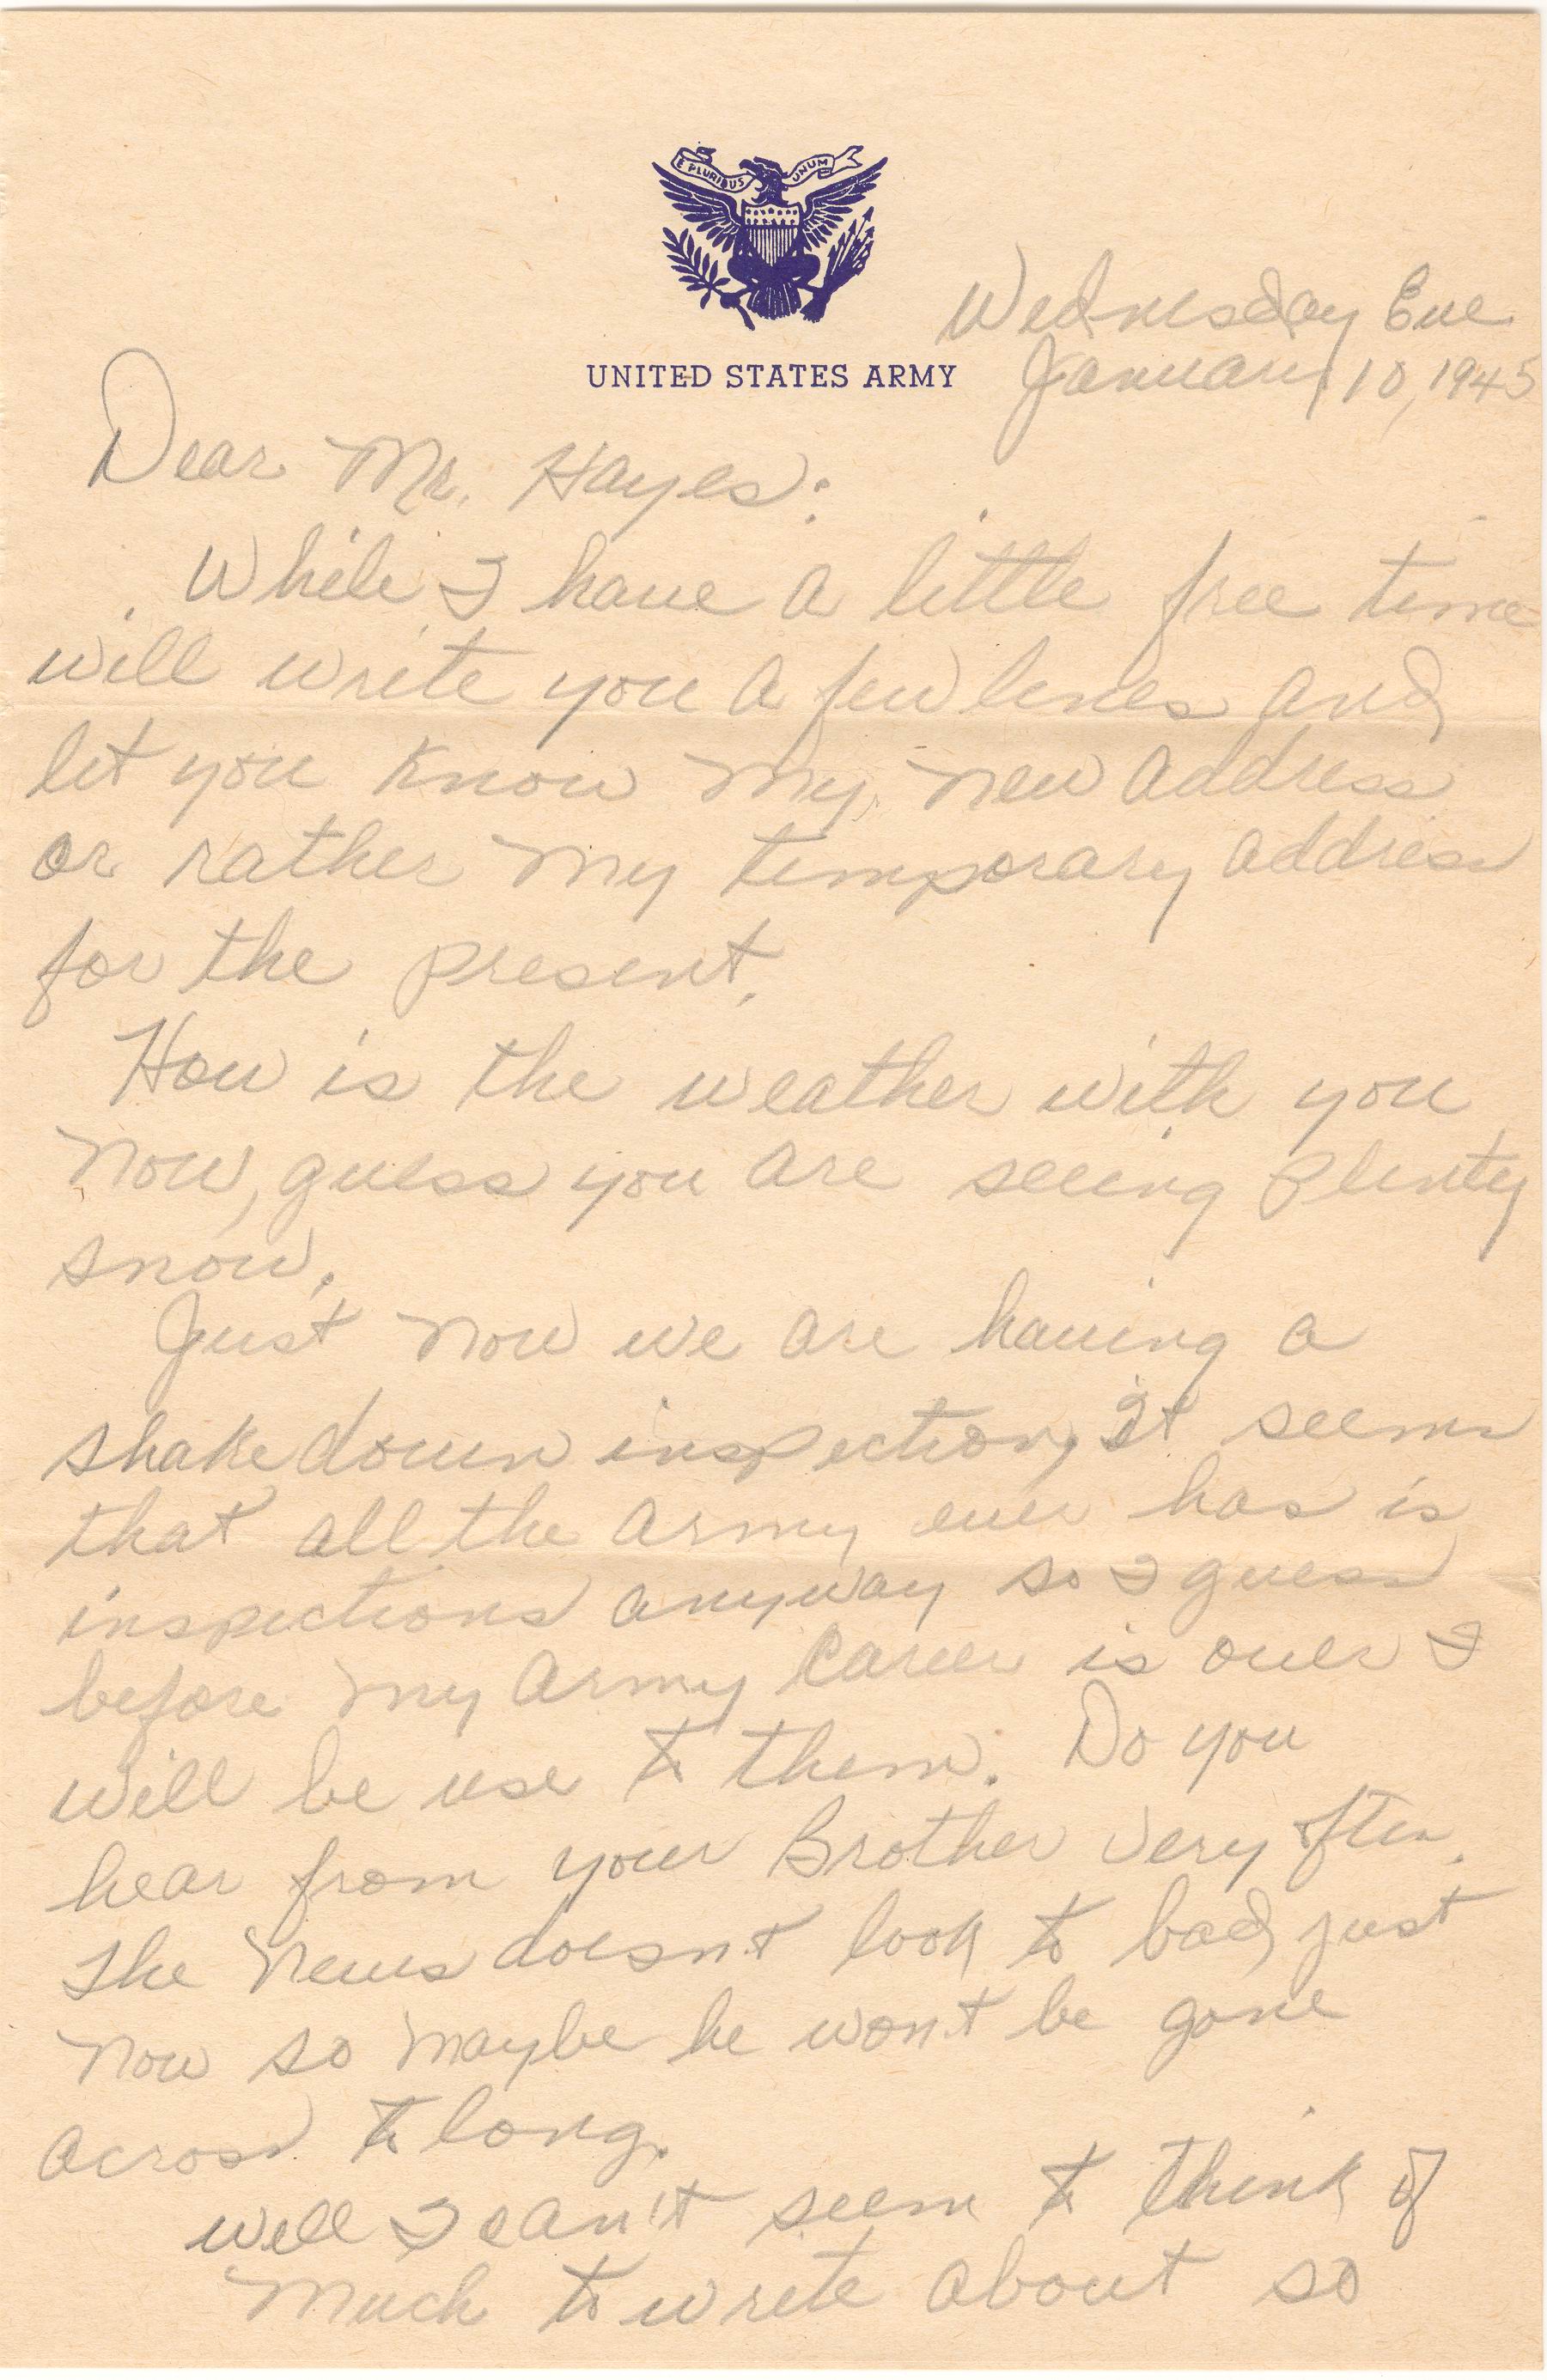 E PLURIBUS UNUM
UNITED STATES ARMY
Wednesday Eve
January 10, 1945
Dear Mr. Hayes:
While I have a little free time
will write you a few lines and
let you know my new address
or rather my temporary address
for the present.
How is the weather with you
now, guess you are seeing plenty
snow.
Just now we are having a
shakedown inspection, it seems
that all the army ever has is
inspections anyway so I guess
before my army career is over I
will be use to them. Do you
hear from your Brother very often.
The news doesn't look to bad just
now so maybe he won't be gone
across to long.
Well I can't seem to think of
much to write about so